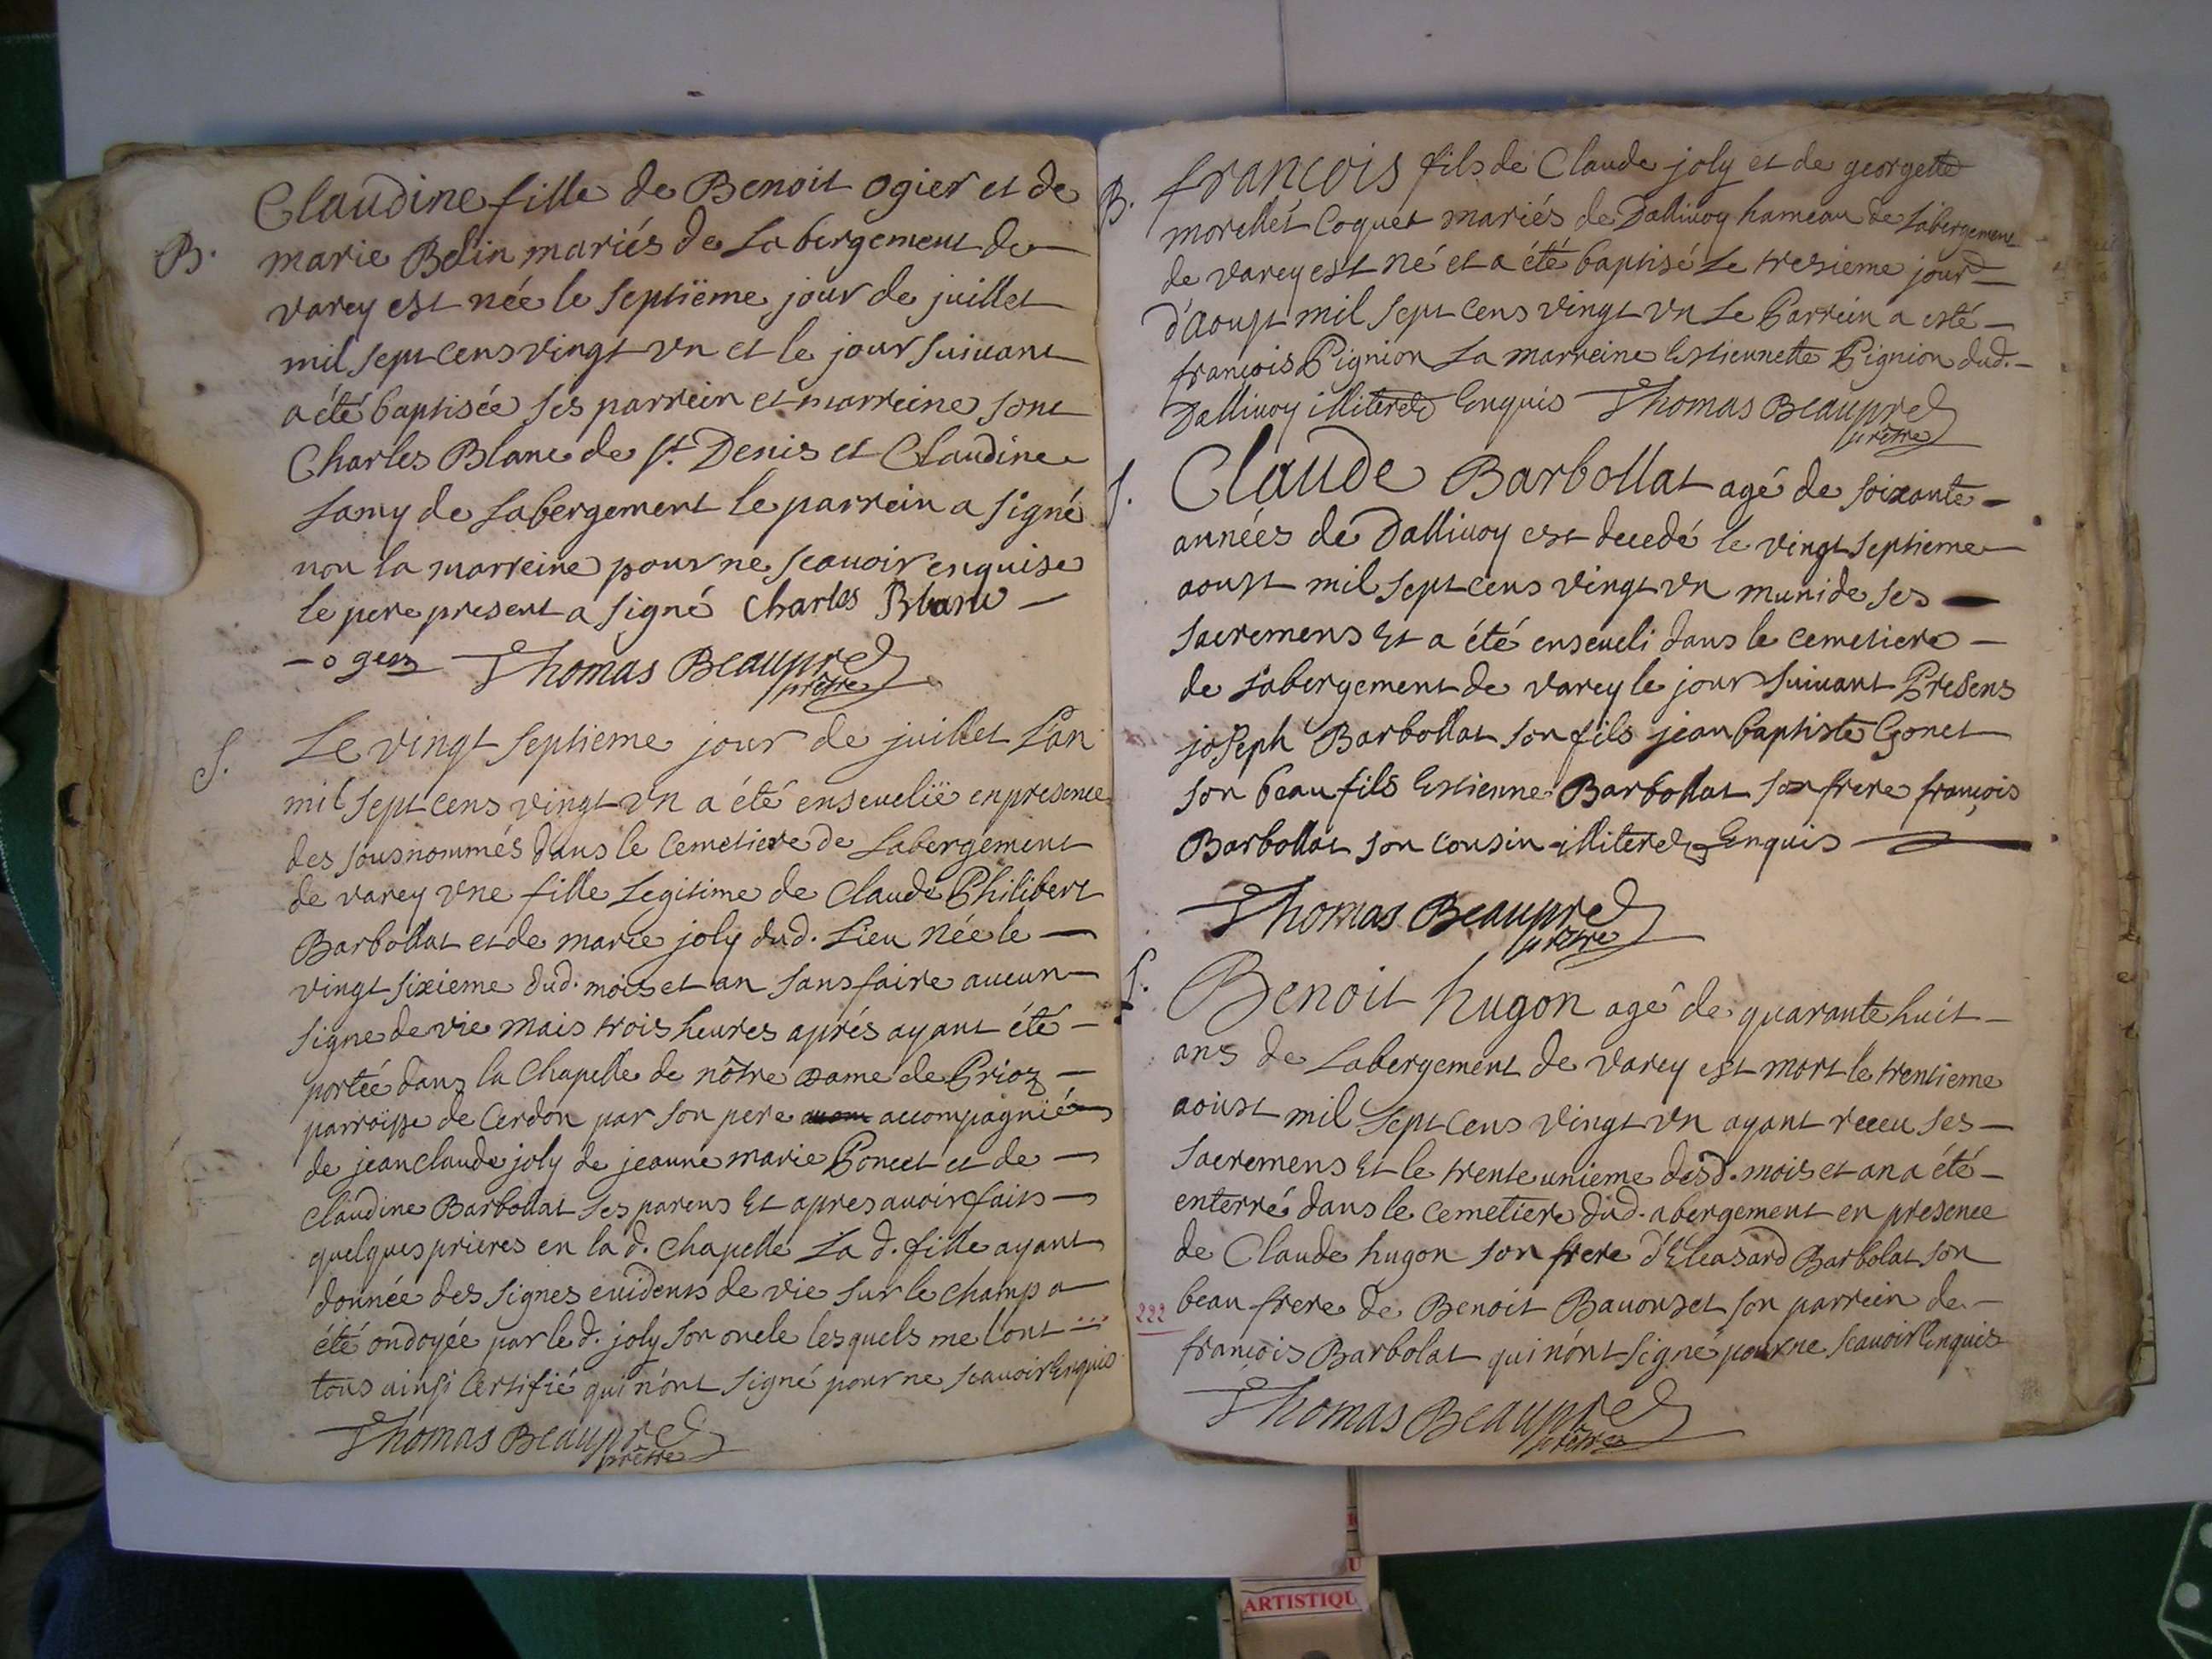 B.
Claudine fille de Benoit ogier et de
marie Belin mariés de Labergement de
varey est née le septiëme jour de juillet
mil sept cens vingt vn et le jour suiuant
a été baptisée ses parrein et marreine sont
Charles Blanc de st. Denis et Claudine
Lamy de Labergement le parrein a signé
non la marreine pour ne scauoir enquise
le pere present a signé Charles Blanc
Thomas Beaupré
prêtre
S.
Le vingt septieme jour de juillet L'an
mil sept cens vingt vn a été enseuelië en presence
des sousnommés dans le cemetiere de Labergement
de varey vne fille Legitime de Claude Philibert
Barbollat et de marie joly dud. Lieu née le
vingt sixieme dud. mois et an sans faire aucun
signe de vie mais trois heures aprés ayant été
portée dans la Chapelle de nôtre Dame de Prioz
parroisse de Cerdon par son pere accompagnié
de jean claude joly de jeanne marie Poncet et de
Claudine Barbollat ses parens Et apres auoir faits
quelques prieres en la d. Chapelle La d. fille ayant
donnée des signes euidents de vie sur le champ a
été ondoyée par le d. joly son oncle lesquels me l'ont
tous ainsi Certifié qui n'ont signé pour ne scauoir Enquis
Thomas Beaupré
prêtre
B.
françois fils de Claude joly et de georgette
morellet Coquet mariés de Dalliuoy hameau de Labergement
de varey est né et a été baptisé Le tresieme jour
d'Aoust mil sept cens vingt vn Le Parrein a esté
françois Pignion La marreine Estiennette Pignion dud.
Dalliuoy Enquis Thomas Beaupré
prêtre
S.
Claude Barbollat agé de soixante
années de Dalliuoy est decedé le vingt septieme
aoust mil sept cens vingt vn muni de ses
sacremens Et a été enseueli dans le cemetiere
de Labergement de varey le jour suiuant Presens
joseph Barbollat son fils jean baptiste Gonet
son beau fils Estienne Barbollat son frere françois
Barbollat son cousin Enquis
Thomas Beaupré
prêtre
S.
Benoit hugon agé de quarante huit
ans de Labergement de varey est mort le trentieme
aoust mil sept cens vingt vn ayant receu ses
sacremens Et le trente unieme desd. mois et an a été
enterré dans le cemetiere dud. abergement en presence
de Claude hugon son frere d'Eleasard Barbolat son
beau frere de Benoit Bauouset son parrein de
françois Barbolat qui n'ont signé pour ne scauoir Enquis
222
Thomas Beaupré
prêtre
ARTISTIQU